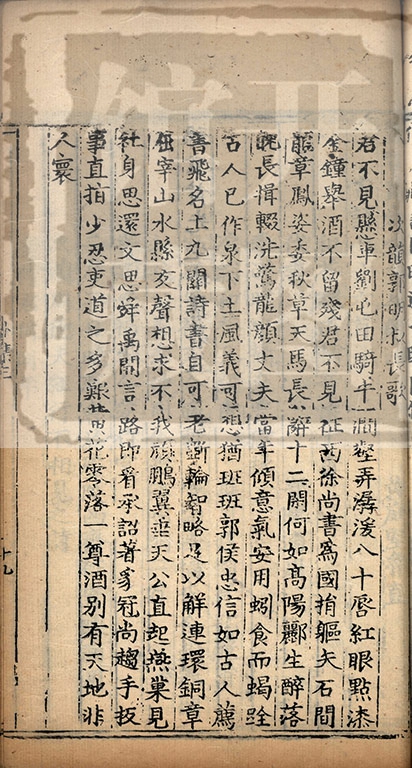 次韻郭明叔長歌
君不見懸車劉屯田騎牛澗壑弄潺湲八十唇紅眼點漆
金鐘舉酒不留殘君不見征西徐尚書為國捐軀矢石間
龍章鳳姿委秋草天馬長辭十二閑何如高陽酈生醉落
魄長揖輟洗驚龍顏丈夫當年傾意氣安用蚓食而蝎跧
古人已作泉下土風義可想猶班班郭侯忠信如古人薦
書飛名上九關詩書自可老斲輪智略足以解連環銅章
屈宰山水縣友聲想求不我頑鵬翼垂天公直起燕巢見
社身思還文思舜禹開言路即看承詔著豸冠尚趨手板
事直指少忍吏道之多艱黃花零落一尊酒別有天地非
人寰
外集三
十九